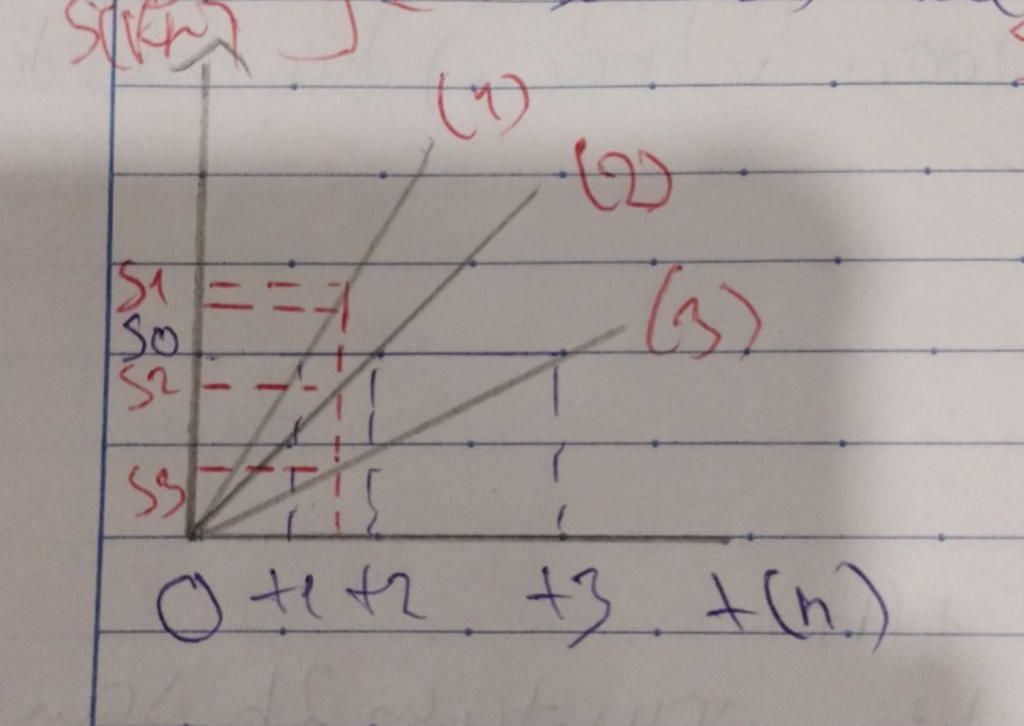 S(km)
(1)
(2)
S1
S0
(3)
S2
S3
0 t1 t2 t3 t(h)